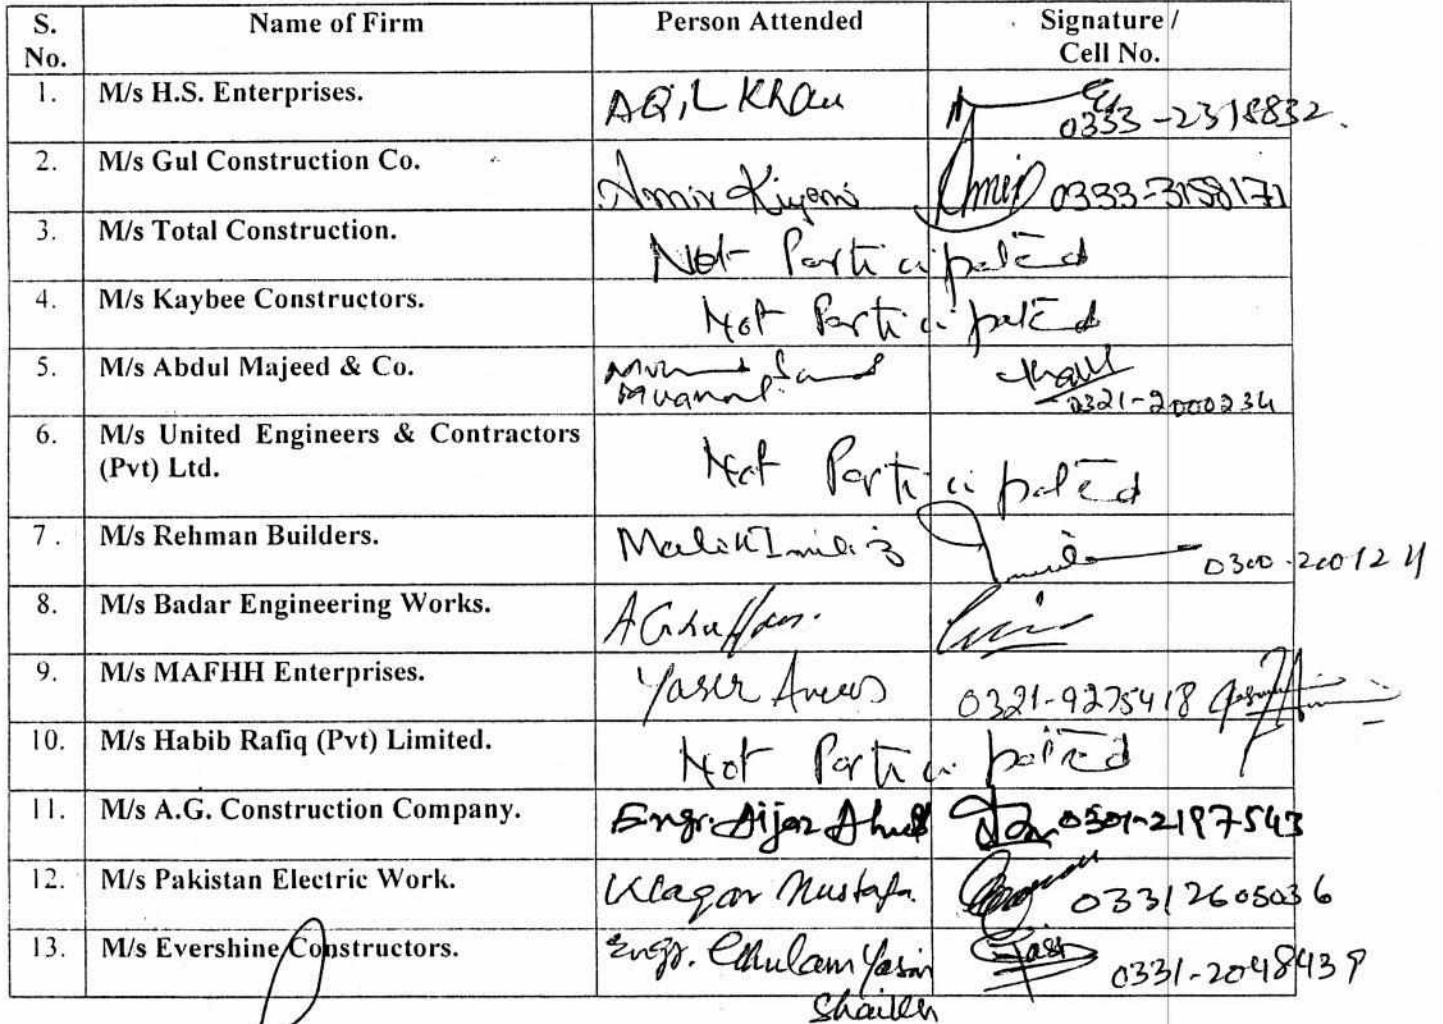 S. No. Name of Firm Person Attended Signature / Cell No.
1. M/s H.S. Enterprises. AQIL Khan 0333-2318832.
2. M/s Gul Construction Co. Amir Kiyani Amir 0333-3158171
3. M/s Total Construction. Not Participated
4. M/s Kaybee Constructors. Not Participated
5. M/s Abdul Majeed & Co. 0321-2000234
6. M/s United Engineers & Contractors
(Pvt) Ltd. Not Participated
7. M/s Rehman Builders. Malik 0300-200124
8. M/s Badar Engineering Works. A Ghaffar.
9. M/s MAFHH Enterprises. Yaser 0321-9275418
10. M/s Habib Rafiq (Pvt) Limited. Not Participated
11. M/s A.G. Construction Company. Engr. Aijaz Ahmed 0301-2197543
12. M/s Pakistan Electric Work. Mustafa 03312605036
13. M/s Evershine Constructors. Engr. Ghulam Yasin 0331-2048439
Shaikh